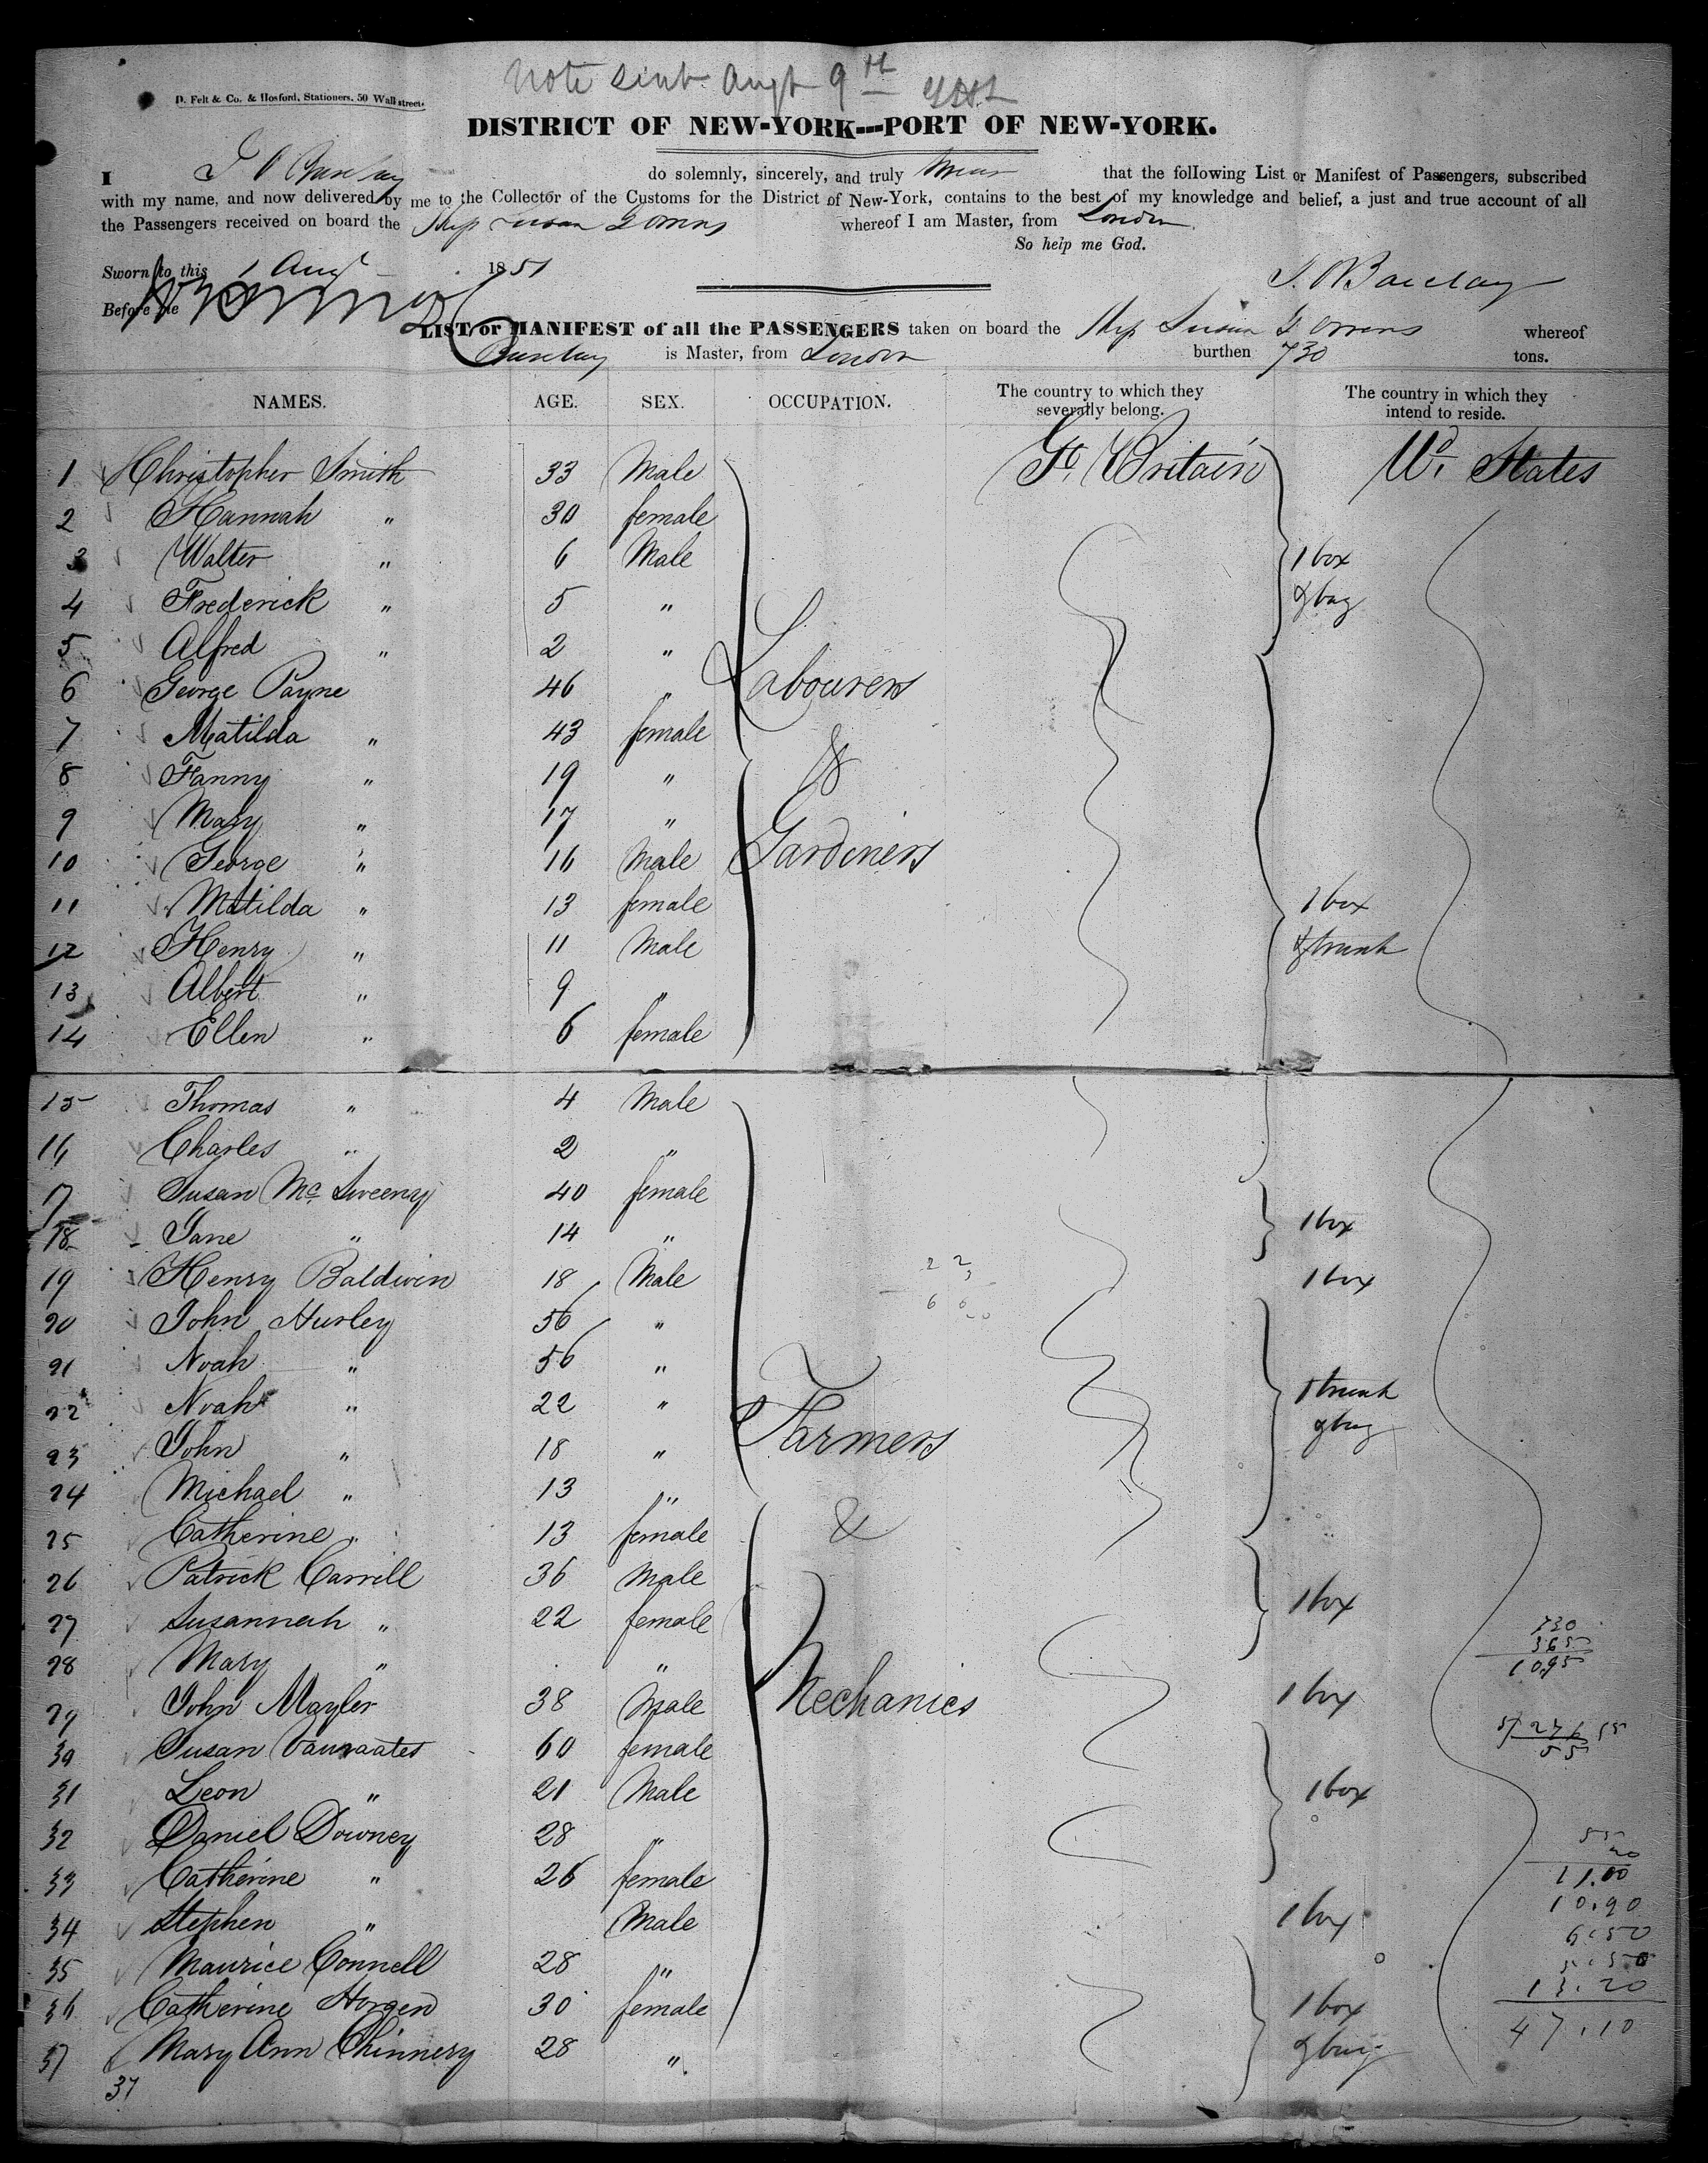 Note sent Augt 9th
D. Felt & Co. & Hosford, Stationers, 50 Wall street.
DISTRICT OF NEW-YORK---PORT OF NEW-YORK.
I T O Barclay do solemnly, sincerely, and truly swear that the following List or Manifest of Passengers, subscribed
with my name, and now delivered by me to the Collector of the Customs for the District of New-York, contains to the best of my knowledge and belief, a just and true account of all
the Passengers received on board the Ship Susan whereof I am Master, from London
So help me God.
Sworn to this 1 Augt 1851
T. O Barclay
Before me
LIST or MANIFEST of all the PASSENGERS taken on board the Ship Susan whereof
Barclay is Master, from London burthen 730 tons.
NAMES. AGE. SEX. OCCUPATION. The country to which they severally belong. The country in which they intend to reside.
1 Christopher Smith 33 Male Gt. Britain Ud. States
2 Hannah " 30 female
3 Walter " 6 Male 1 box
4 Frederick " 5 " & bag
5 Alfred " 2 "
6 George Payne 46 " Labourers
7 Matilda " 43 female
8 Fanny " 19 " &
9 Mary " 17 "
10 George " 16 Male Gardiners
11 Matilda " 13 female 1 box
12 Henry " 11 Male & trunk
13 Albert " 9 "
14 Ellen " 6 female
15 Thomas " 4 Male
16 Charles " 2 "
17 Susan Mc Sweeny 40 female
18 Jane " 14 " 1 box
19 Henry Baldwin 18 Male 1 box
20 John Hurley 56 "
21 Noah " 56 "
22 Noah " 22 " 1 trunk
23 John " 18 " Farmers & bag
24 Michael " 13 "
25 Catherine " 13 female &
26 Patrick Carrill 36 Male
27 Susannah " 22 female 1 box
28 Mary " "
29 John Mayler 38 Male Mechanics 1 box
30 Susan 60 female
31 Leon " 21 Male 1 box
32 Daniel Downey 28 "
33 Catherine " 26 female
34 Stephen " Male 1 box
35 Maurice Connell 28 "
36 Catherine Horgen 30 female 1 box
37 Mary Ann Chinnery 28 " & bag
37
730
365
10.95
55
11.00
10.90
6.50
5.50
13.20
47.10